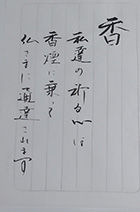 香
私達の祈る心は
香煙に乗って
仏さまに通達されます